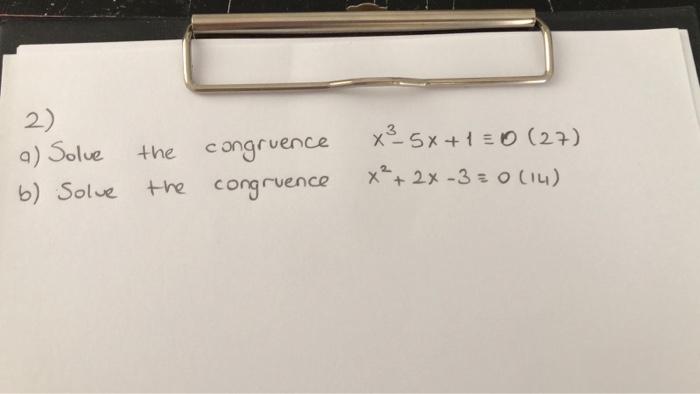 2)
a) Solve the congruence x³-5x+1≡0 (27)
b) Solve the congruence x²+2x-3≡0 (14)